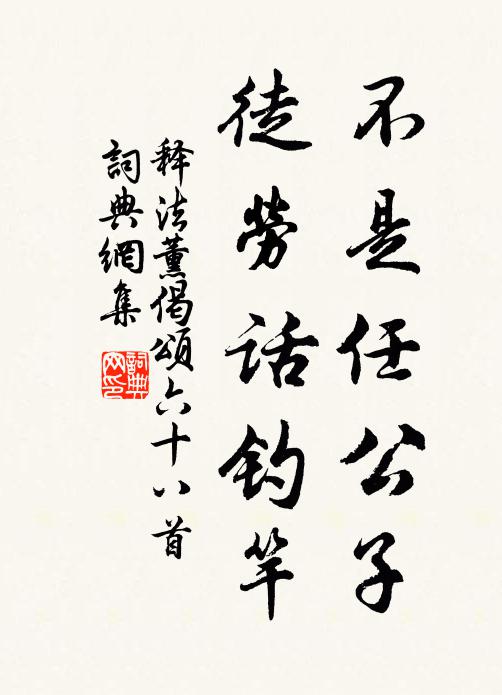 不是任公子
徒勞話釣竿
释法薰偈頌六十八首
詞典網集
詞典网印